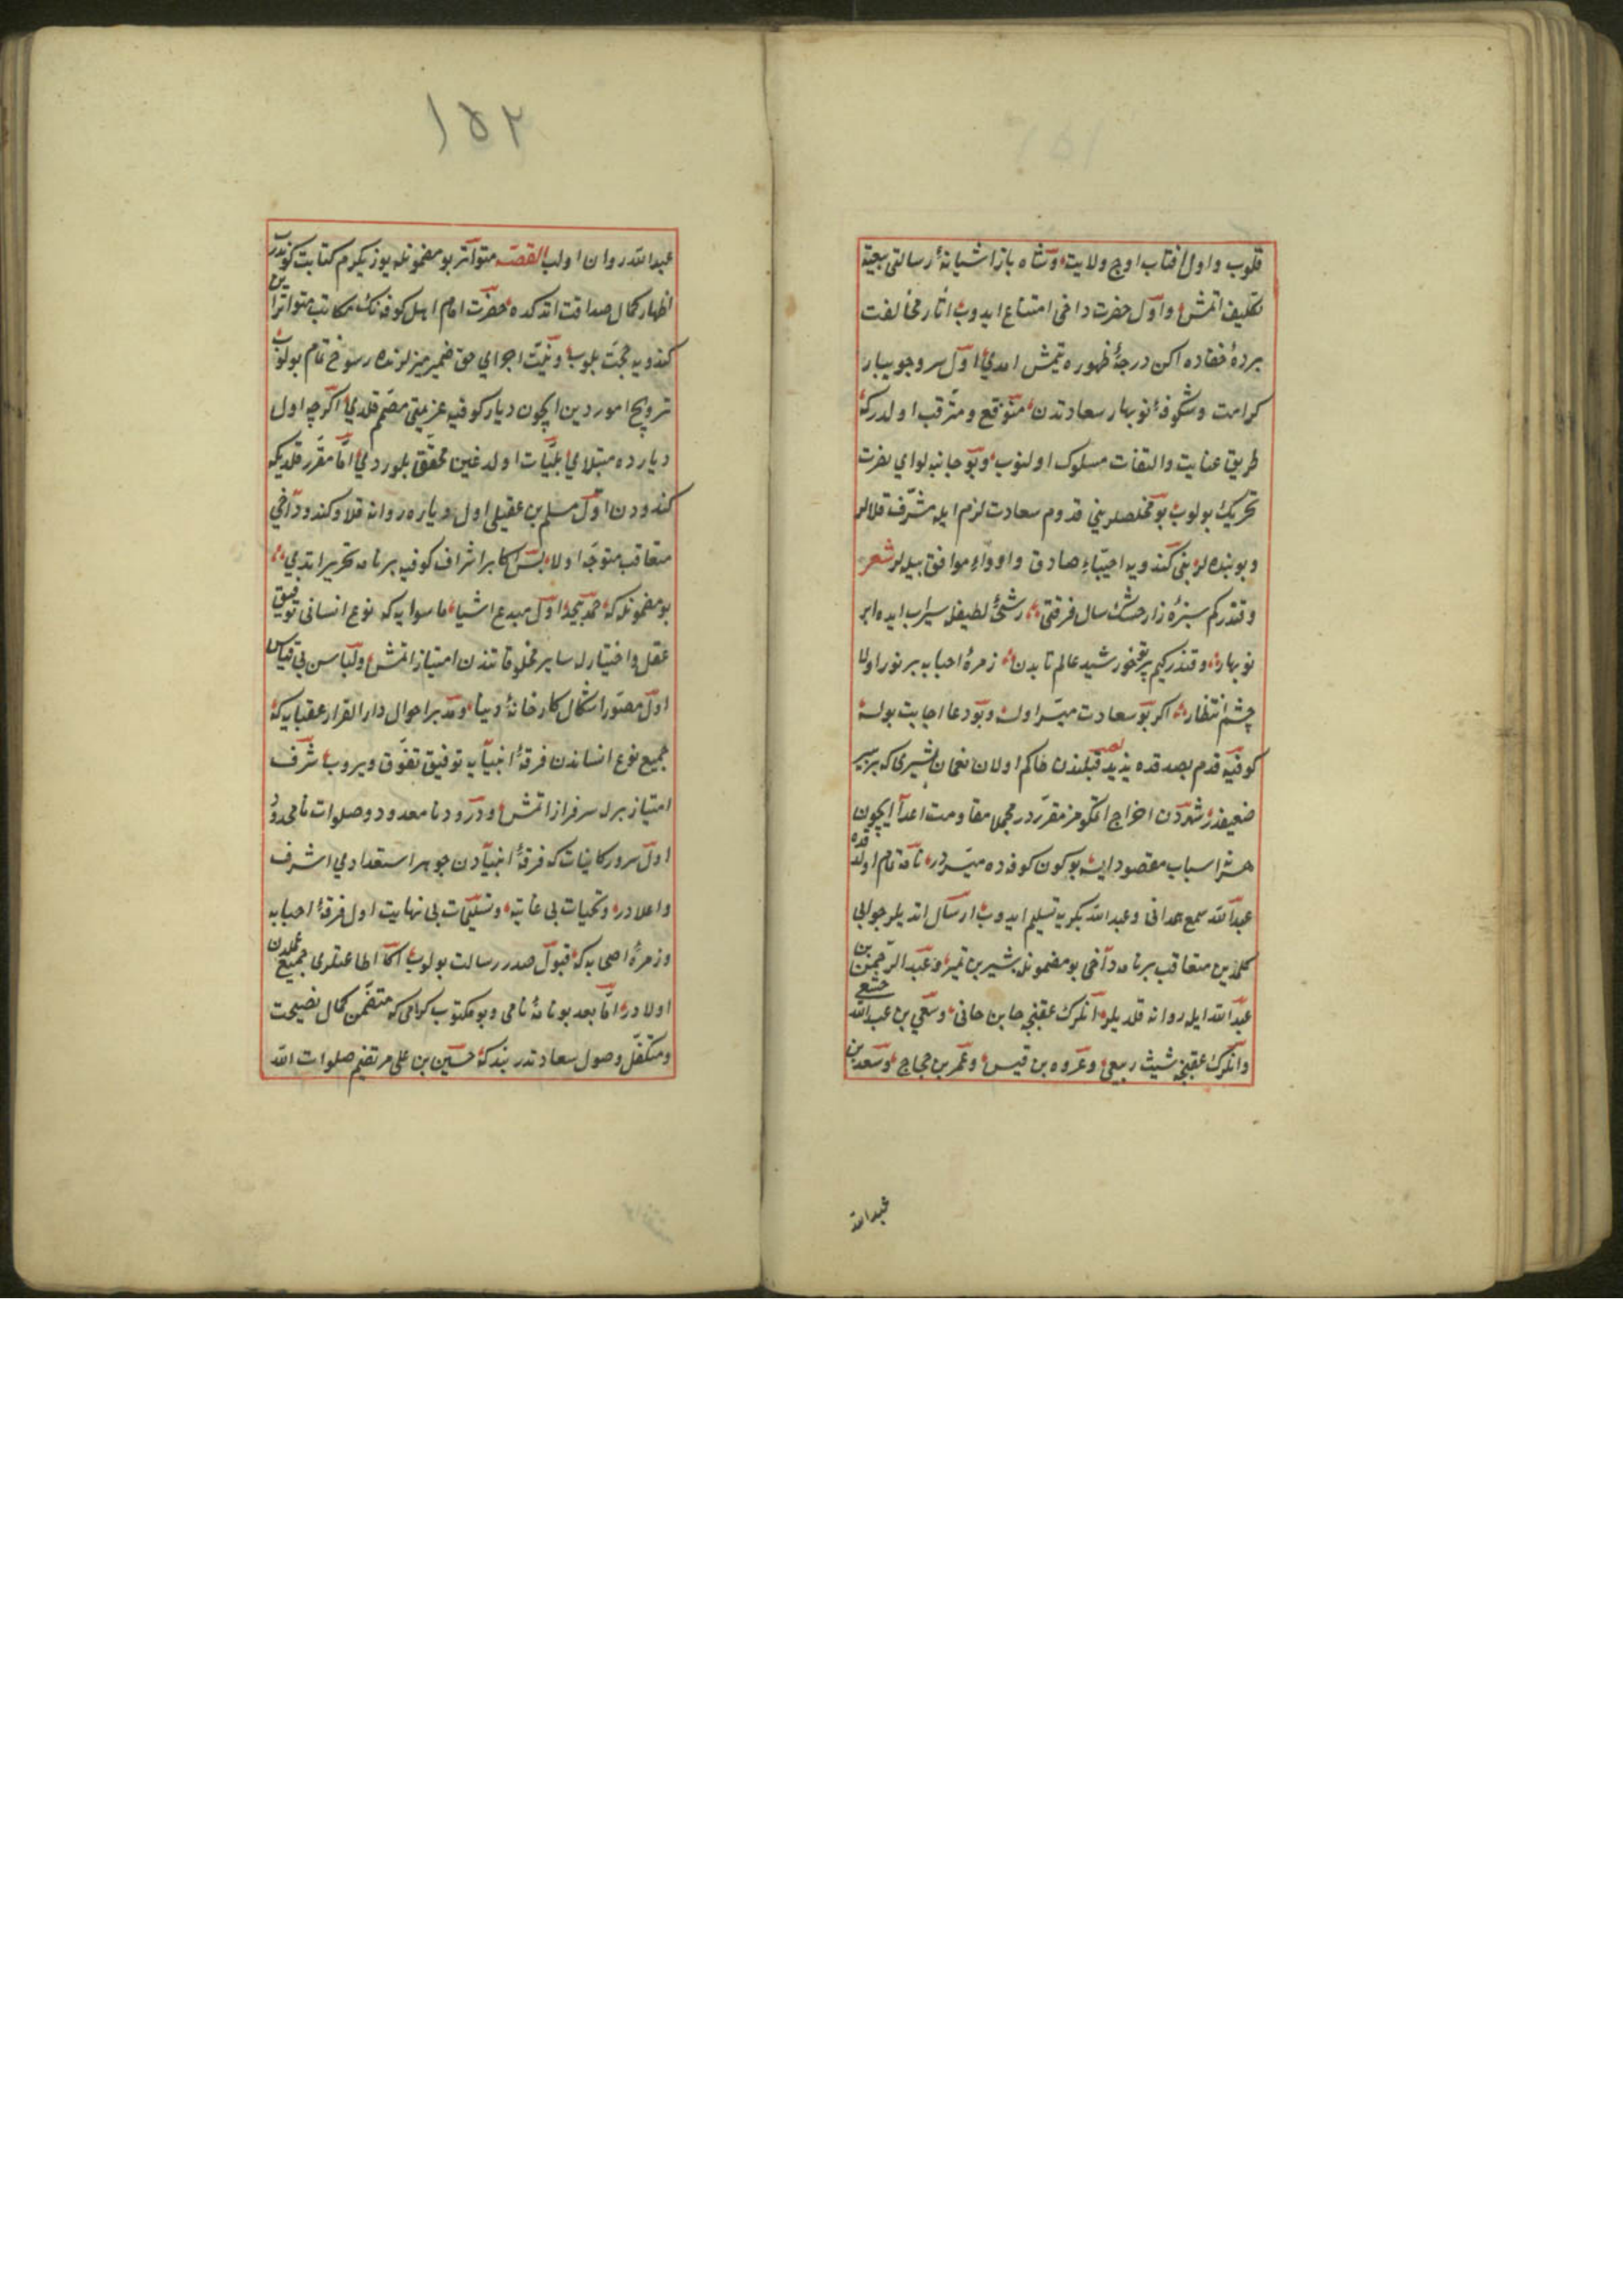 قلوب و اول افتاب اوج ولایت و شاه باز اشیانهٔ رسالتی بیعته
تکلیف اتمش و اول حضرت داخی امتناع ایدوب اثار مخالفت
پردهٔ خفاده اکن درجهٔ ظهوره یتمش امدی اول سرو جویبار
کرامت و شکوفهٔ نوبهار سعادتدن متوقع و مترقب اولدرکه
طریق عنایت و التفات مسلوک اولنوب و بو جانبه لوای نصرت
تحریک بولوب بو مخلصلرینی قدوم سعادت لزم ایله مشرف قلالر
و بو بنده لرینی کندویه احبّاء صادق و اودّاء موافق بیله لر شعر
وقتدر کم سبزه زار خشک سال فرقتی رشحهٔ لطیفله سیراب ایده ابر
نوبهار وقتدر کیم پرتو خورشید عالم تابدن زمرهٔ احبابه پر نور اولا
چشم انتظار اکر بو سعادت میسر اولسه و بو دعا اجابت بولسه
کوفیه قدم بصدقده یزید قبلندن حاکم اولان نعمان بشیری که بر پیر
ضعیفدر شهردن اخراج اتمکومز مقرردر مجملا مقاومت اعدا ایچون
هر نه اسباب مقصود ایسه بو کون کوفه ده میسردر نامه تمام اولدقده
عبدالله سمیع همدانی و عبدالله بکریه تسلیم ایدوب ارسال اتدیلر جوابی
کلمدین متعاقب بر نامه داخی بو مضمونله بشیر بن نمیر و عبد الرحمن بن
عبدالله ایله روانه قلدیلر انلرک عقبنجه هانی بن هانی و سعی بن عبدالله خثعمی
و انلرک عقبنجه شیث ربیعی و عروه بن قیس و عمر بن حجاج و سعد بن
عبدالله
١٥٢
عبدالله روان اولدی القصه متواتر بو مضمونله یوز یکرم کتابت کوندرب
اظهار کمال صداقت اتدکده حضرت امام اهل کوفه نک مکاتب متواتراسن
کندویه حجت بلوب و نیت اجرای حق ضمیر منیرلرنده رسوخ تمام بولوب
ترویج امور دین ایچون دیار کوفیه عزیمتی مصمم قلدی اکرچه اول
دیارده مبتلای بلیّات اولدغین محقق بلوردی امّا مقرر قلدیکه
کندودن اوّل مسلم بن عقیلی اول دیاره روانه قلا و کندو داخی
متعاقب متوجه اولا پس اکابر اشراف کوفیه بر نامه تحریر اتدی
بو مضمونله که حمد بیحد اول مبدع اشیاء ما سوایه که نوع انسانی توفیق
عقل و اختیارله سایر مخلوقاتندن امتیاز اتمش و سپاس بی قیاس
اول مصوّر اشکال کارخانهٔ دنیا و مدبر احوال دار القرار عقبایه که
جمیع نوع انساندن فرقهٔ انبیایه توفیق تفوّق ویروب شرف
امتیاز برله سرفراز اتمش و درود نامعدود و صلوات نامحدود
اول سرور کائناته که فرقهٔ انبیادن جوهر استعدادی اشرف
و اعلادر و تحیات بی غایه و تسلیمات بی نهایت اول فرقهٔ احبابه
و زمرهٔ اصحابه که قبول صدر رسالت بولوب اکا اطاعتلری جمیع عملدن
اولادر امّا بعد بو نامهٔ نامی و بو مکتوب کرامی که متضمّن کمال نصیحت
و متکفّل وصول سعادتدر بندکه حسین بن علی مرتضیم صلوات الله